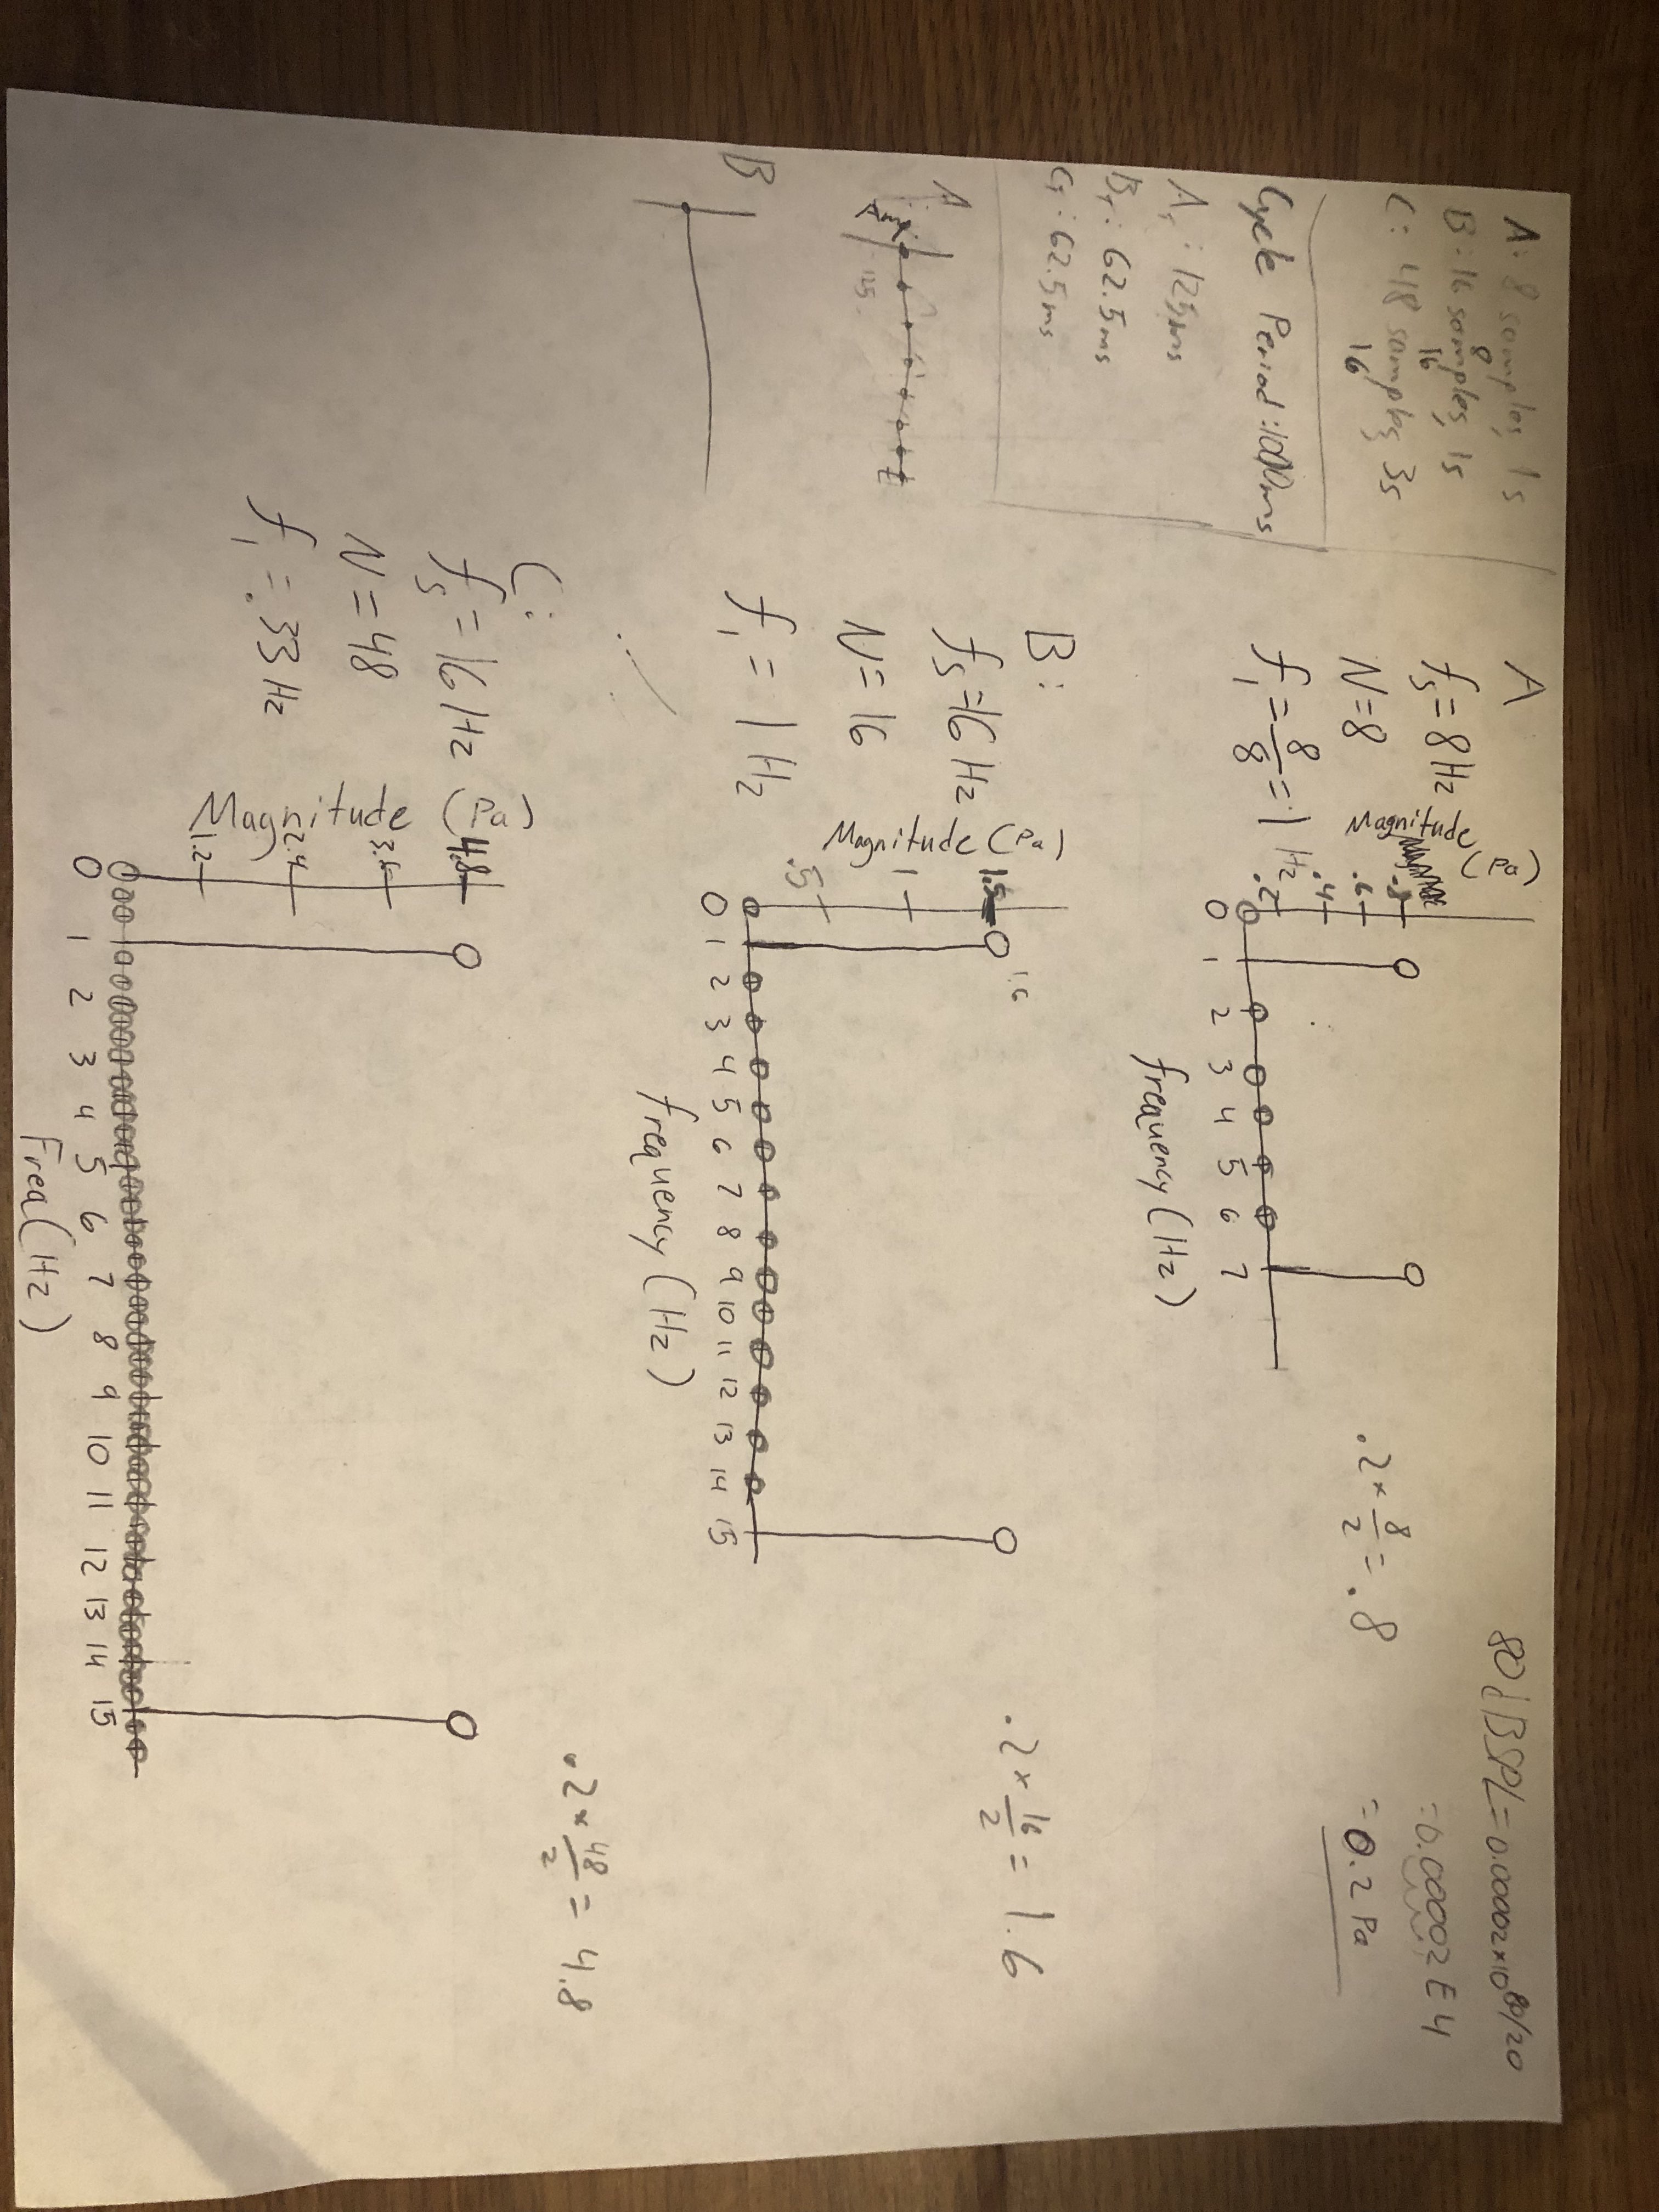 A: 8 samples, 1s
8
B: 16 samples, 1s
16
C: 48 samples, 3s
16
Cycle Period: 1000ms
A_T: 125ms
B_T: 62.5ms
C_T: 62.5ms
A
Amp
125
t
B
A
f_s = 8 Hz
N = 8
f_1 = 8/8 = 1 Hz
Magnitude (Pa)
.8
.6
.4
.2
0 1 2 3 4 5 6 7
frequency (Hz)
.2 × 8/2 = .8
80 dBSPL = 0.00002 × 10^80/20
= 0.00002 E 4
= 0.2 Pa
B:
f_s = 16 Hz
N = 16
f_1 = 1 Hz
Magnitude (Pa)
1.5
1.6
1
.5
0 1 2 3 4 5 6 7 8 9 10 11 12 13 14 15
frequency (Hz)
.2 × 16/2 = 1.6
C:
f_s = 16 Hz
N = 48
f_1 = .33 Hz
Magnitude (Pa)
4.8
3.6
2.4
1.2
0 1 2 3 4 5 6 7 8 9 10 11 12 13 14 15
Freq (Hz)
.2 × 48/2 = 4.8